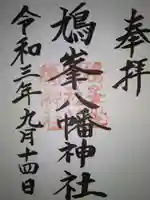 奉拝
鳩峯八幡神社
令和三年九月十四日